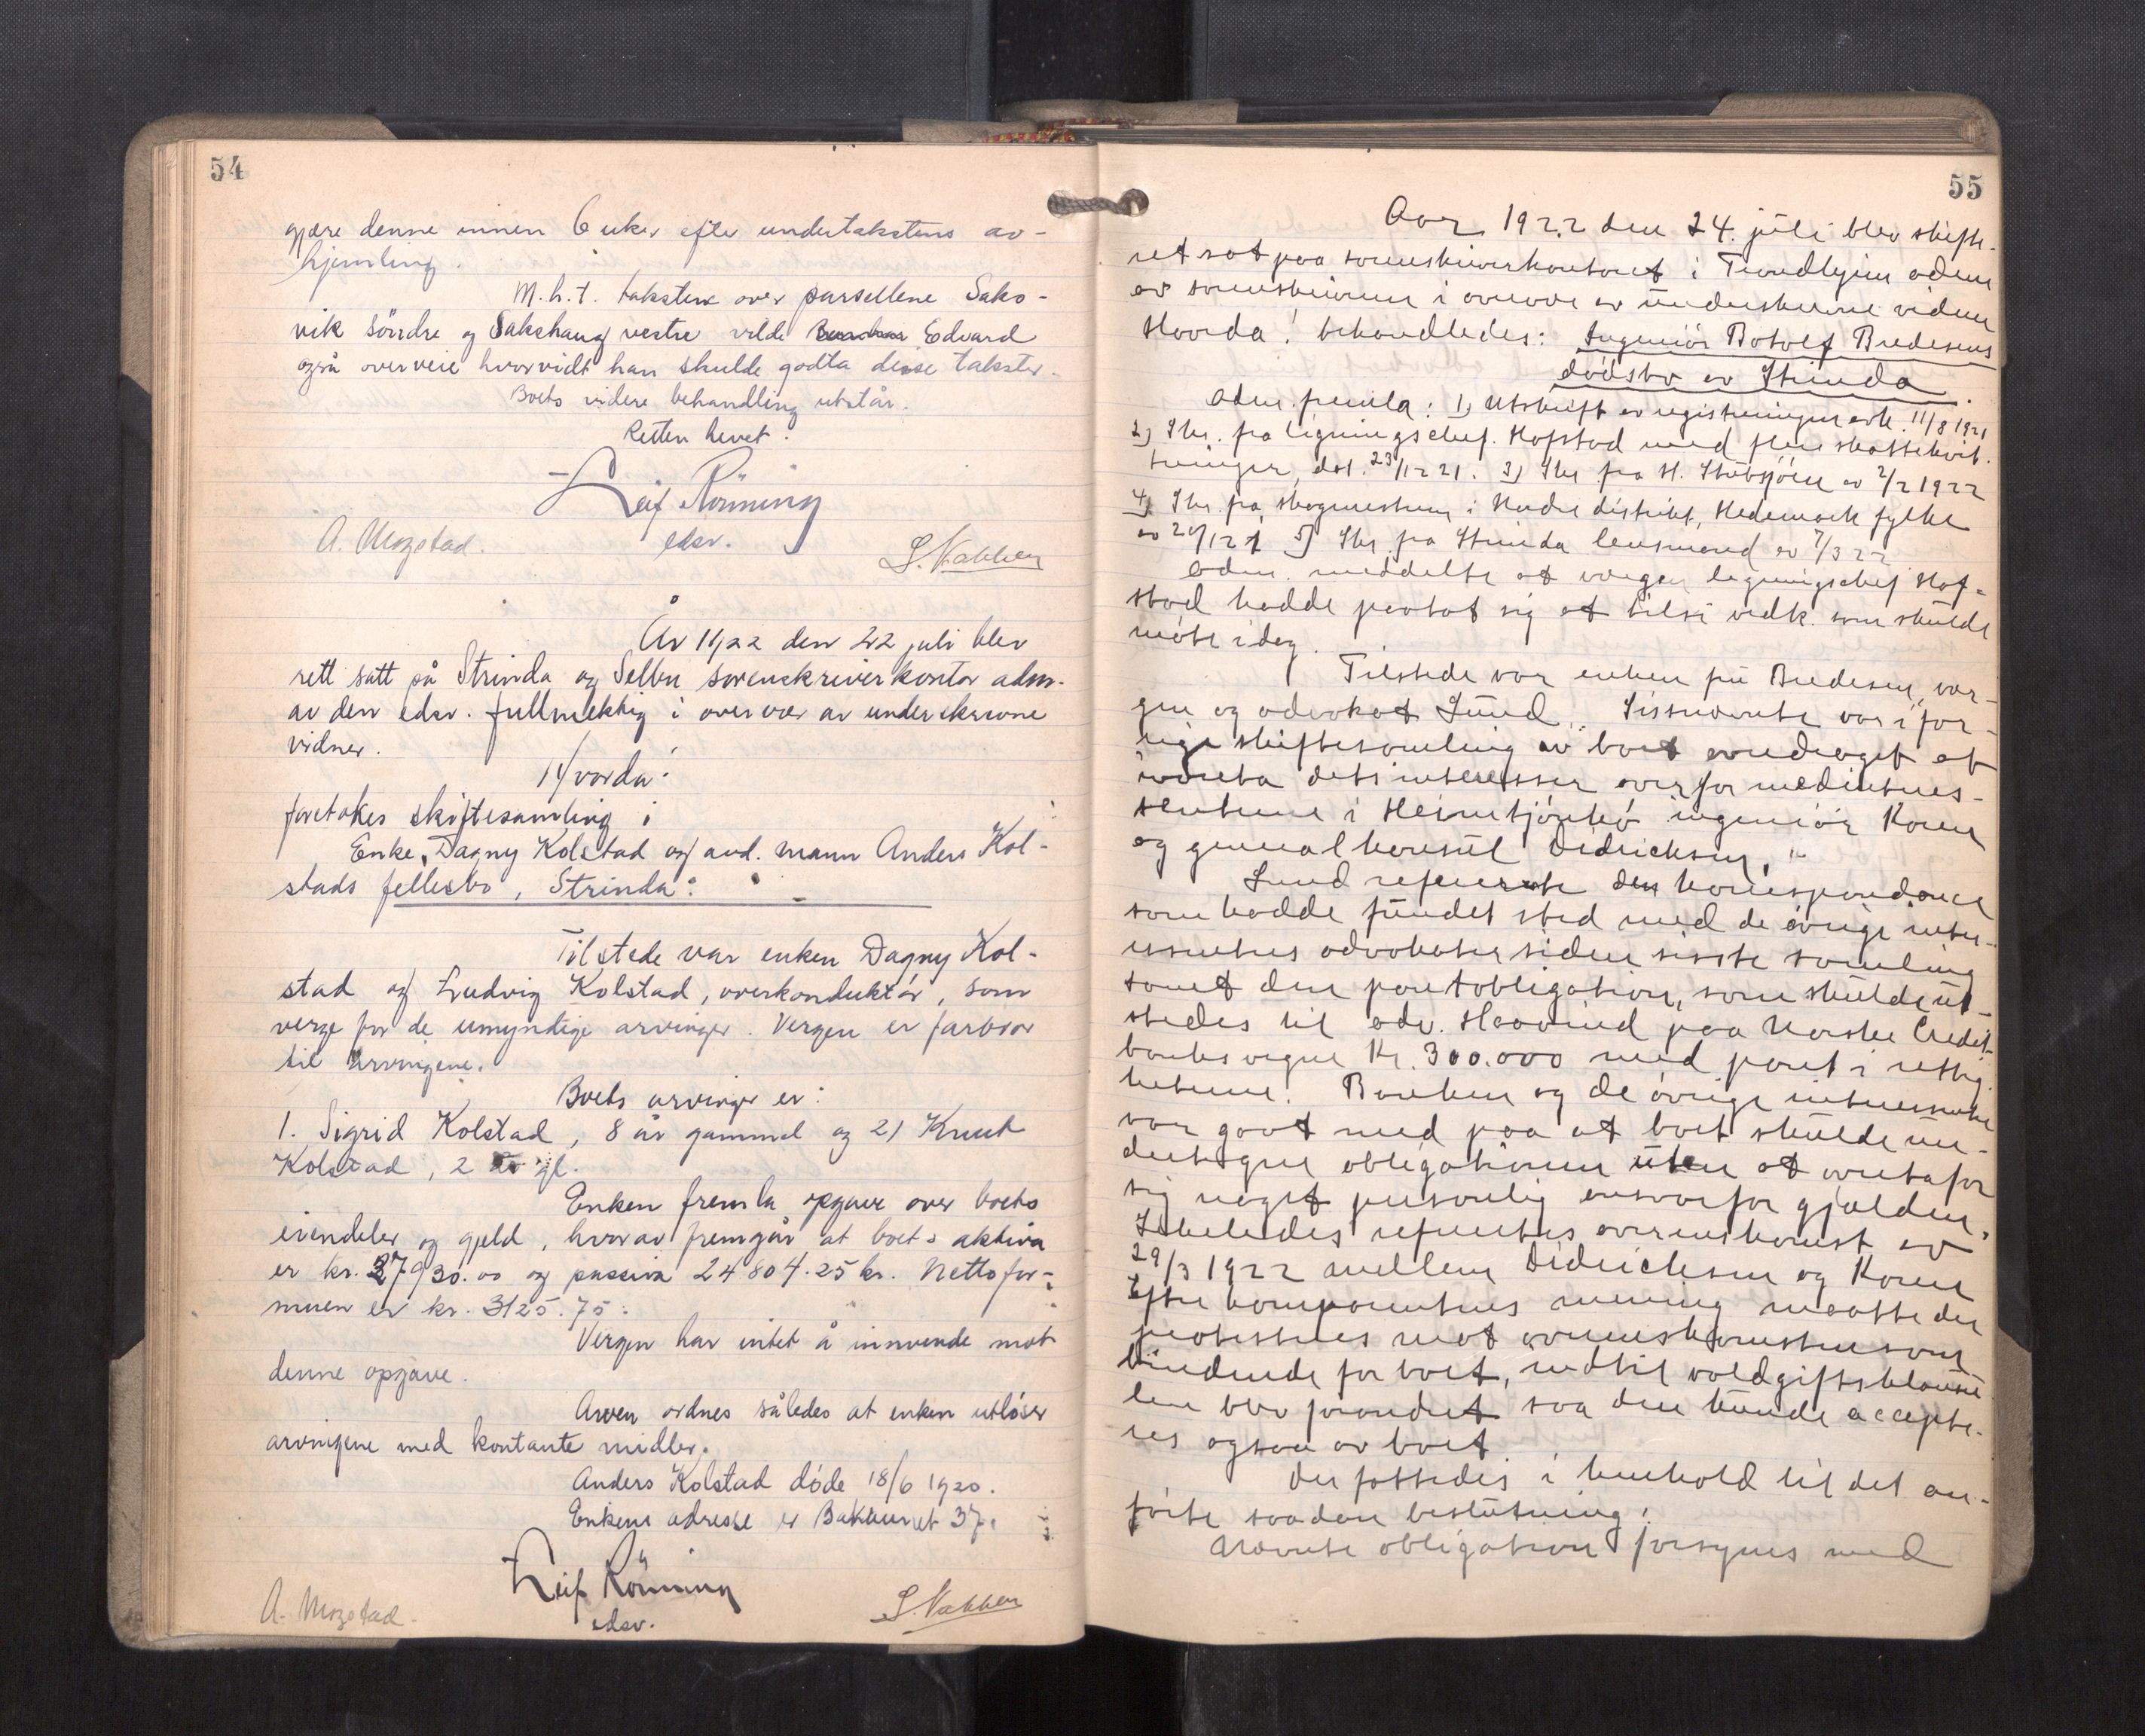 54
gjøre denne innen 6 uker efter undertakstens av-
hjemling.
M.h.t. taksten over parsellene Saks-
vik söndre og Sakshaug vestre vilde Edvard
også overveie hvorvidt han skulde godta disse takster.
Boets videre behandling utstår.
Retten hevet.
Leif Rönning
edsv.
A. Mogstad.
S. Nakken
År 1922 den 22 juli blev
rett satt på Strinda og Selbu sorenskriverkontor adm.
av den edsv. fullmektig i overvær av underskrevne
vidner.
Hvorda:
foretokes skiftesamling i
Enke Dagny Kolstad og avd. mann Anders Kol-
stads fellesbo, Strinda:
Tilstede var enken Dagny Kol-
stad og Ludvig Kolstad, overkonduktør, som
verge for de umyndige arvinger. Vergen er farbror
til arvingene.
Boets arvinger er:
1. Sigrid Kolstad, 8 år gammel og 2) Knut
Kolstad, 2 år gl.
Enken fremla opgave over boets
eiendeler og gjeld, hvorav fremgår at boets aktiva
er kr. 27930.00 og passiva 24804.25 kr. Nettofor-
muen er kr. 3125.75.
Vergen har intet å innvende mot
denne opgave.
Arven ordnes således at enken utløser
arvingene med kontante midler.
Anders Kolstad døde 18/6 1920.
Enkens adresse er Bakkaunet 37.
Leif Rönning
edsv.
A. Mogstad.
S. Nakken
55
Aar 1922 den 24. juli blev skifte-
ret sat paa sorenskriverkontoret i Trondhjem adm
av sorenskriveren i overvær av underskrevne vidner
Hvorda: behandledes: Ingeniör Botolf Bredesens
dödsbo av Strinda.
Adm. fremla: 1) Utskrift av registreringen avh. 11/8 1921
2) Skr. fra ligningschef Hofstad med flere skattekvit-
teringer, dat. 23/12 21. 3) Skr fra H. Stubsjöen av 2/2 1922
4) Skr. fra skogmesteren i Nedre distrikt, Hedemark fylke
av 20/12 21 5) Skr fra Strinda lensmand av 7/3 22
Adm. meddelte at vergen ligningschef Hof-
stad hadde paatat sig at tilsi vedk. som skulde
möte idag.
Tilstede var enken fru Bredesen, ver-
gen og advokat Lund. Sistnævnte var i for-
rige skiftesamling av boet andraget at
ivareta dets interesser overfor medinteres-
sentene i Heimtjönhö ingeniör Koren
og generalkonsul Didrichsen.
Lund refererte den korrespondance
som hadde fundet sted med de övrige inter-
essenters advokater siden siste samling
samt den panteobligation, som skulde ut-
stedes til adv. Haavind paa Norske Credit-
banks vegne Kr. 300.000 med pant i rettig-
hetene. Banken og de övrige interessenter
var gaat med paa at boet skulde un-
dertegne obligationen uten at overta for
sig noget personlig ansvar for gjælden.
Likeledes refererte overenskomst av
29/3 1922 mellem Didrichsen og Koren
Efter komparentenes mening maatte der
protesteres mot overenskomsten som
bindende for boet, indtil voldgiftsklausu-
len blev forandret saa den kunde accepte-
res ogsaa av boet.
Der fattedes i henhold til det an-
förte saadan beslutning:
Nævnte obligation forsynes med